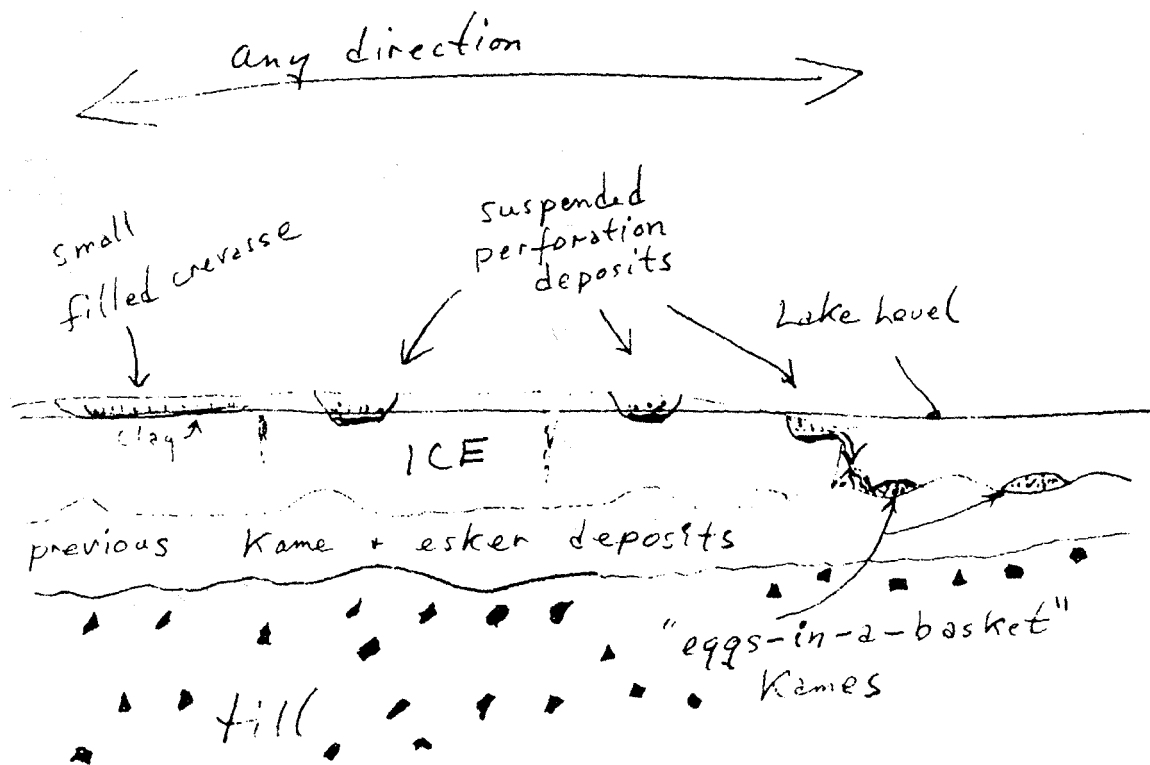 any direction
small
filled crevasse
suspended
perforation
deposits
Lake Level
clay
ICE
previous Kame + esker deposits
"eggs-in-a-basket"
Kames
till